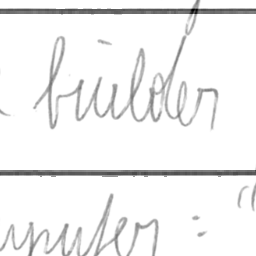 builder
mputer : "